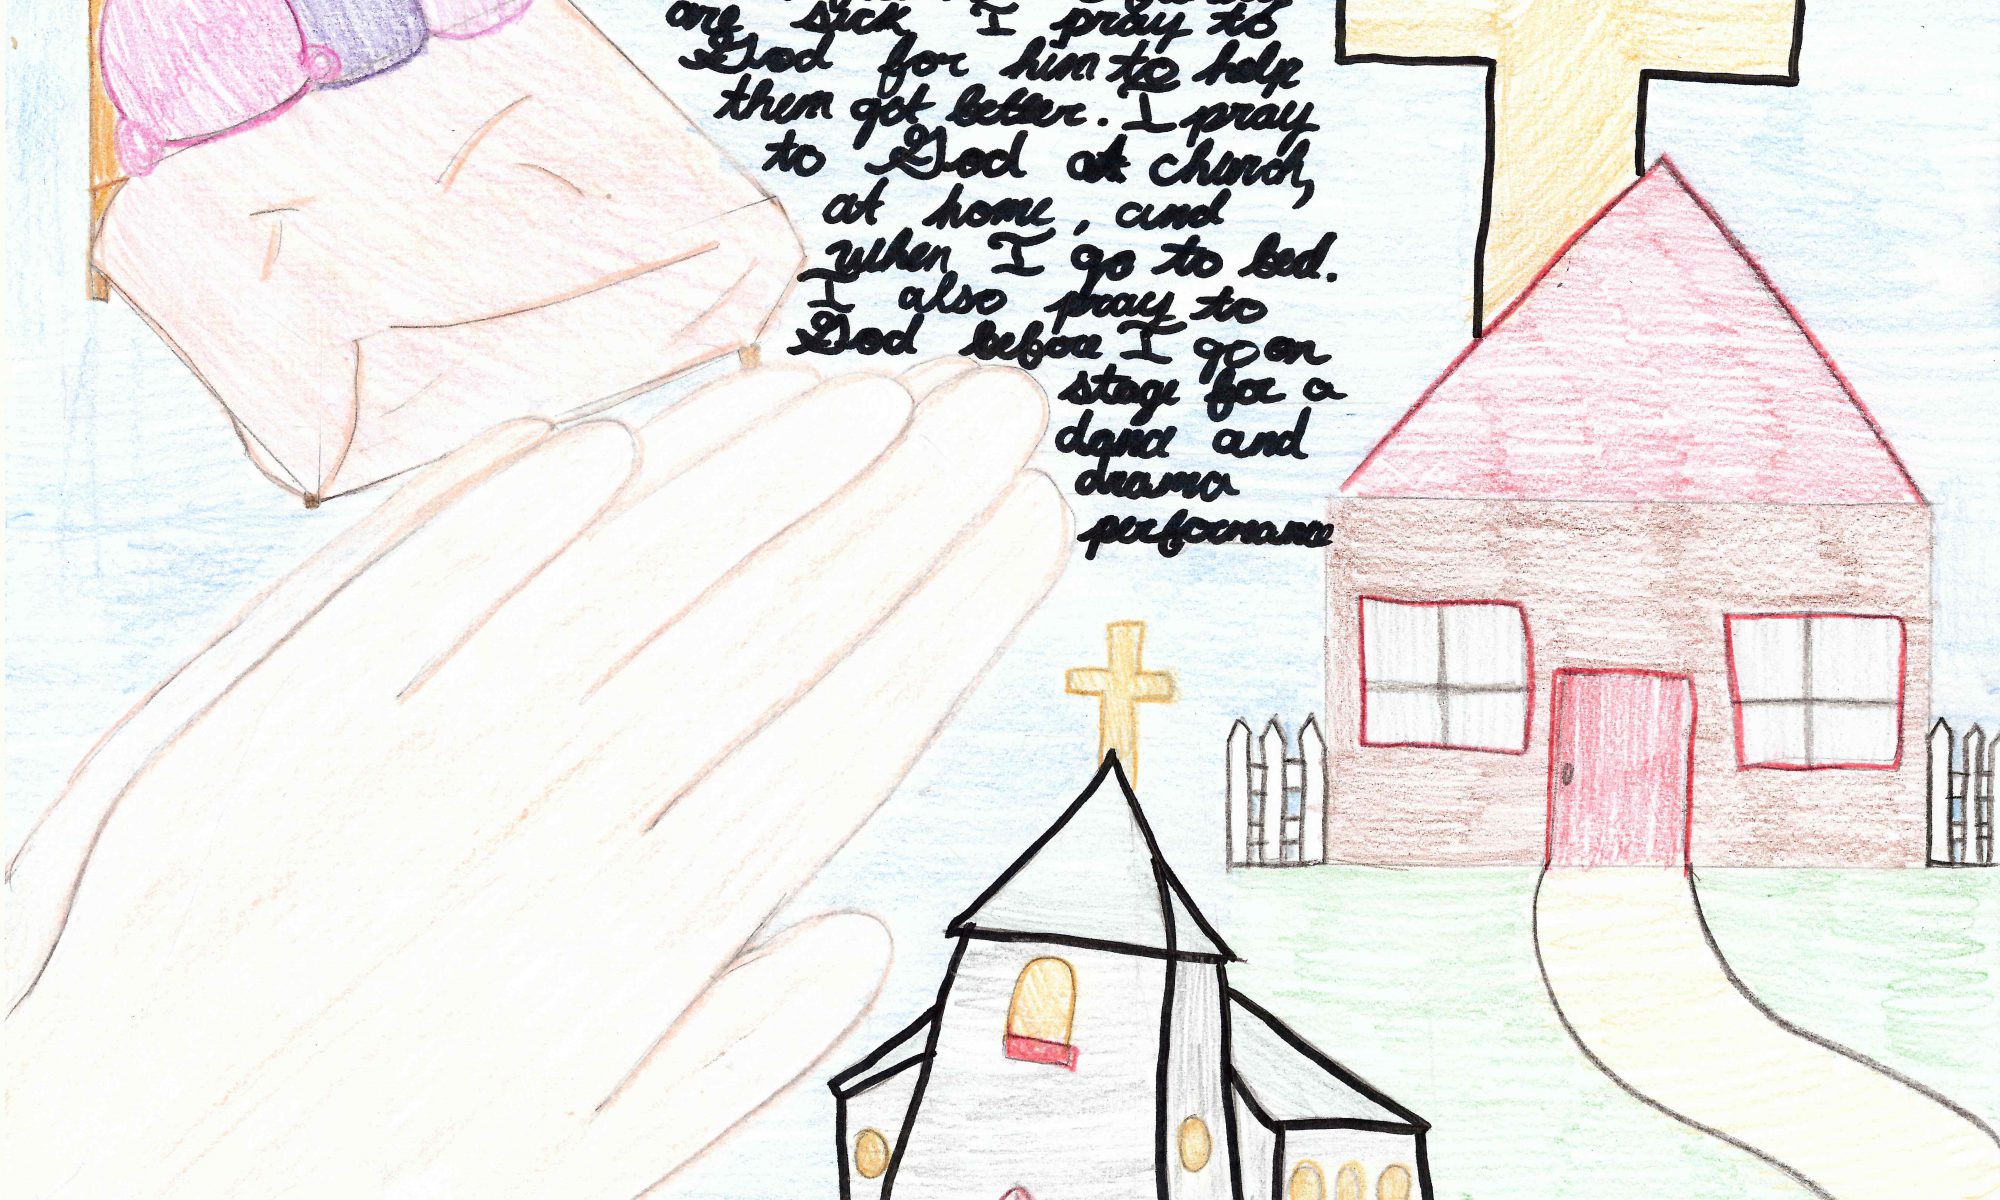 are sick I pray to
God for him to help
them get better. I pray
to God at church,
at home, and
when I go to bed.
I also pray to
God before I go on
stage for a
dance and
drama
performance